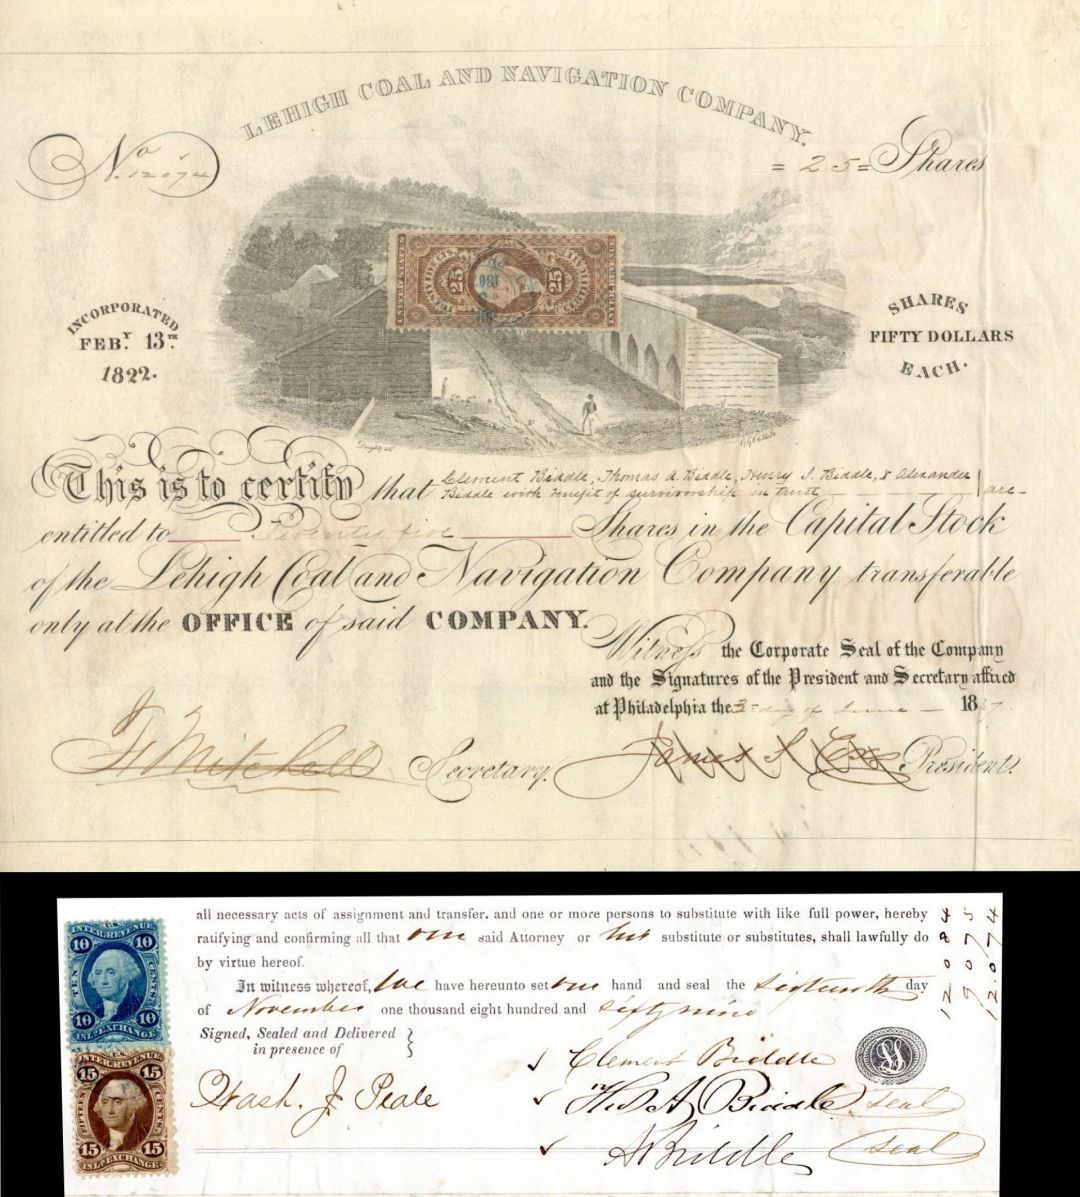 LEHIGH COAL AND NAVIGATION COMPANY.
No. 12074
= 25 = Shares
INCORPORATED
FEBY. 13TH.
1822.
SHARES
FIFTY DOLLARS
EACH.
UNITED STATES
25
25
INTER. REVENUE
This is to certify that Clement Biddle, Thomas A. Biddle, Henry J. Biddle, & Alexander
Biddle with benefit of survivorship in trust are
entitled to Seventy five Shares in the Capital Stock
of the Lehigh Coal and Navigation Company transferable
only at the OFFICE of said COMPANY.
Witness the Corporate Seal of the Company
and the Signatures of the President and Secretary affixed
at Philadelphia the 3d day of June 1867.
F. Mitchell Secretary.
James S. Cox President.
all necessary acts of assignment and transfer, and one or more persons to substitute with like full power, hereby
ratifying and confirming all that our said Attorney or his substitute or substitutes, shall lawfully do
by virtue hereof.
In witness whereof, we have hereunto set our hand and seal the Sixteenth day
of November one thousand eight hundred and sixty nine
Signed, Sealed and Delivered
in presence of
Wash. J. Peale
Clement Biddle
Thos A Biddle seal
A Biddle seal
12084
9075
12.074
U.S.
INTER. REVENUE
10 10
TEN CENTS
10 10
INL. EXCHANGE
U.S.
INTER. REVENUE
15 15
FIFTEEN CENTS
15 15
INL. EXCHANGE